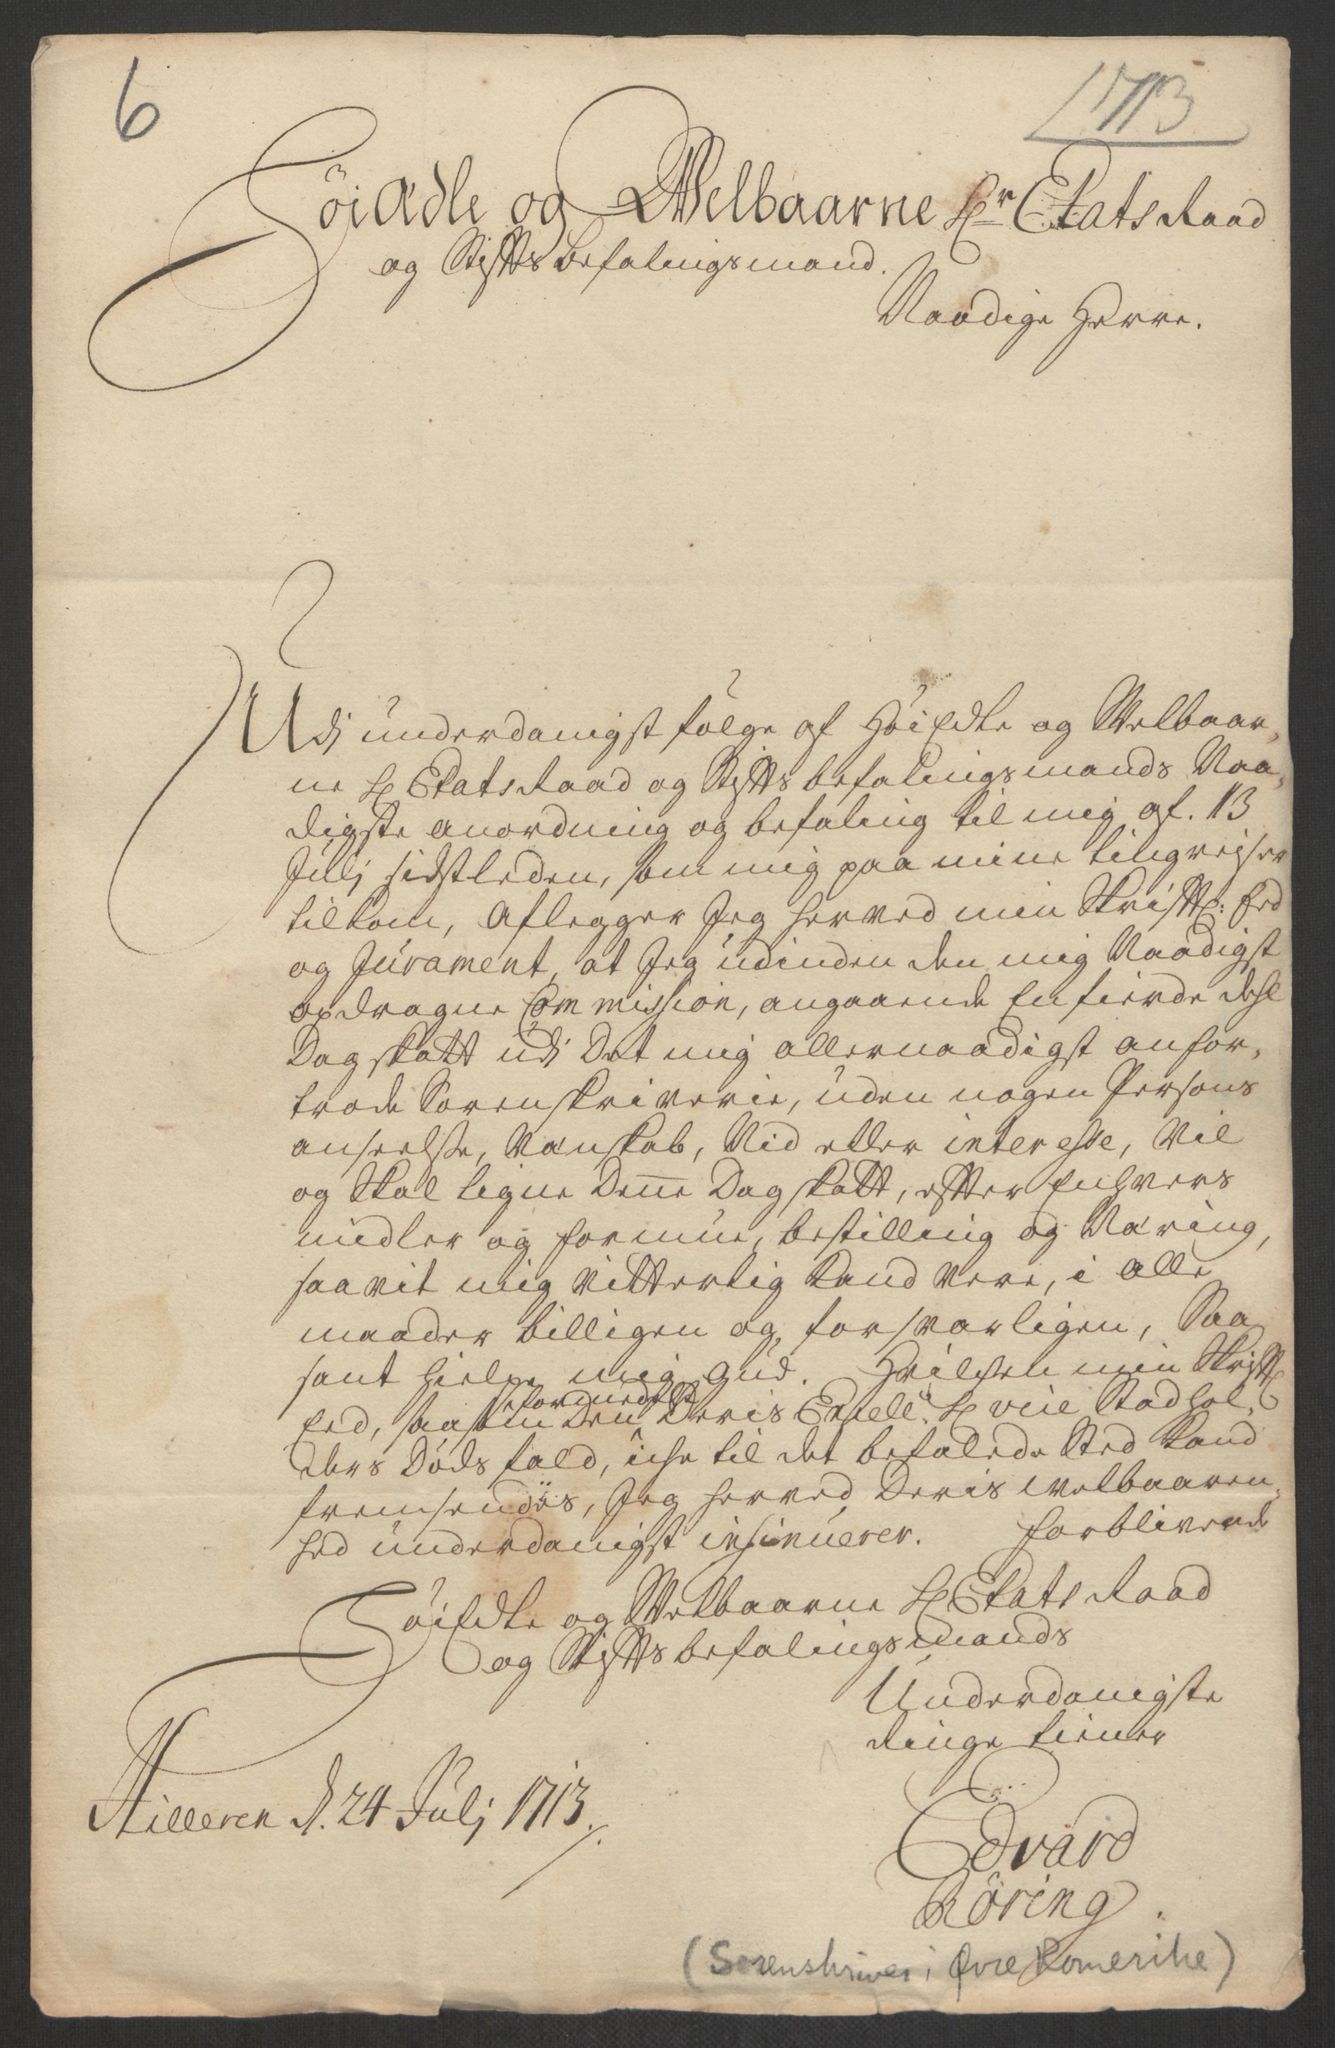 6
1713
Höiædle og Welbaarne Hr Etats Raad
og Stiftsbefalingsmand.
Naadige Herre.
Udj underdanigst fölge af HöiEdle og Welbaar,
ne H Etats Raad og Stiftsbefalingsmands Naa,
digste anordning og befaling til mig af. 13
Julj sidstleden, som mig paa mine tingreiser
tilkom, Aflegger Jeg herved min Skriftl: Eed
og Jurament, at Jeg udinden den mig Naadigst
opdragne Commission, angaaende En fierde deel
Dagskatt udj Det mig allernaadigst anfor,
trode Sorenskriverie, uden nogen Persons
anseelse, Vanskab, Nid eller interesse, Vil
og Skal ligne Denne Dagskatt, efter Enhvers
midler og formue, bestilling og Næring,
saavit mig vitterlig kand vere, i alle
maader billigen og forsvarligen, Saa
sant hielpe mig Gud. Hvilchen min Skriftl
formedelst
Eed, saasom Den Deris Excell: H vice Stadhol,
ders Döds fald, iche til det befalede Sted kand
fremsendes, Jeg herved Deris welbaaren,
hed underdanigst insinuerer. forblivende
HöiEdle og Welbaarne H Etats Raad
og Stiftsbefalingsmands
Underdanigste
ringe tiener
Hilleren d. 24 Julj 1713.
Edvard
Röring.
(Sorenskriver i Øvre Romerike)